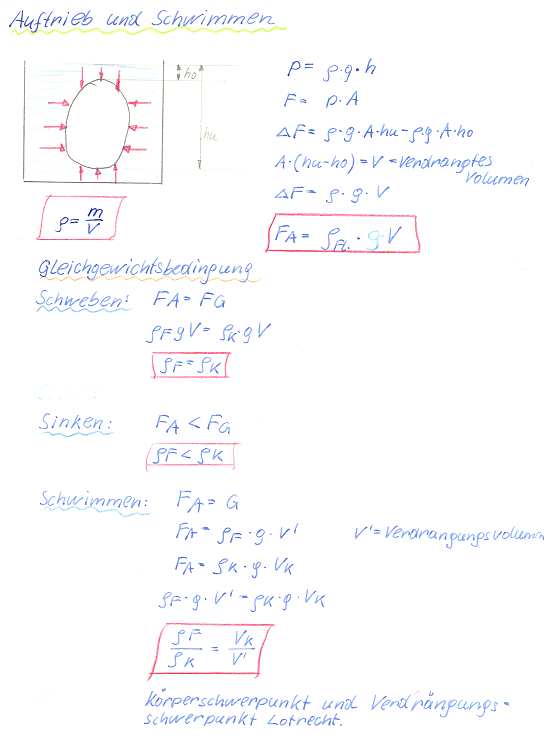 Auftrieb und Schwimmen
ho
hu
p = ρ·g·h
F = p·A
ΔF = ρ·g·A·hu-ρ·g·A·ho
A·(hu-ho) = V = Verdrängtes
Volumen
ΔF = ρ·g·V
ρ = m/V
FA = ρFl.·g·V
Gleichgewichtsbedingung
Schweben: FA = FG
ρFgV = ρK·gV
ρF = ρK
Sinken: FA < FG
ρF < ρK
Schwimmen: FA = G
FA = ρF·g·V' V' = Verdrängungsvolumen
FA = ρK·g·VK
ρF·g·V' = ρK·g·VK
ρF/ρK = VK/V'
Körperschwerpunkt und Verdrängungs-
schwerpunkt Lotrecht.